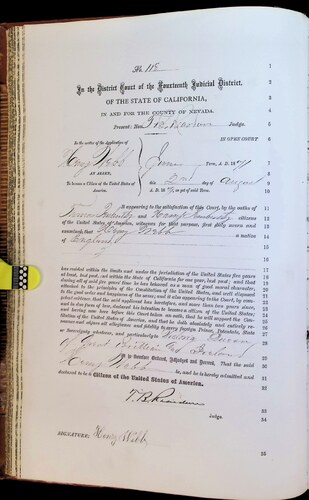 No. 115
In the District Court of the Fourteenth Judicial District,
OF THE STATE OF CALIFORNIA,
IN AND FOR THE COUNTY OF NEVADA.
Present: Hon. T. B. Reardon Judge.
IN OPEN COURT
In the matter of the Application of
Henry Webb
AN ALIEN,
To become a Citizen of the United States of
America.
June Term, A. D. 1871
this 2nd day of August
A. D. 18 as yet of said Term.
It appearing to the satisfaction of this Court, by the oaths of
and citizens
of the United States of America, witnesses for that purpose, first duly sworn and
examined, that Henry Webb a native
of England
has resided within the limits and under the jurisdiction of the United States five years
at least, last past, and within the State of California for one year, last past; and that
during all of said five years' time he has behaved as a man of good moral character,
attached to the principles of the Constitution of the United States, and well disposed
to the good order and happiness of the same; and it also appearing to the Court, by com-
petent evidence, that the said applicant has heretofore, and more than two years since,
and in due form of law, declared his intention to become a citizen of the United States;
and having now here before this Court taken an oath, that he will support the Con-
stitution of the United States of America, and that he doth absolutely and entirely re-
nounce and abjure all allegiance and fidelity to every foreign Prince, Potentate, State
or Sovereignty whatever, and particularly to the Queen
of Great Britain & Ireland
It is therefore Ordered, Adjudged and Decreed, That the said
Henry Webb be, and he is hereby admitted and
declared to be a Citizen of the United States of America.
T. B. Reardon
Judge.
SIGNATURE: Henry Webb